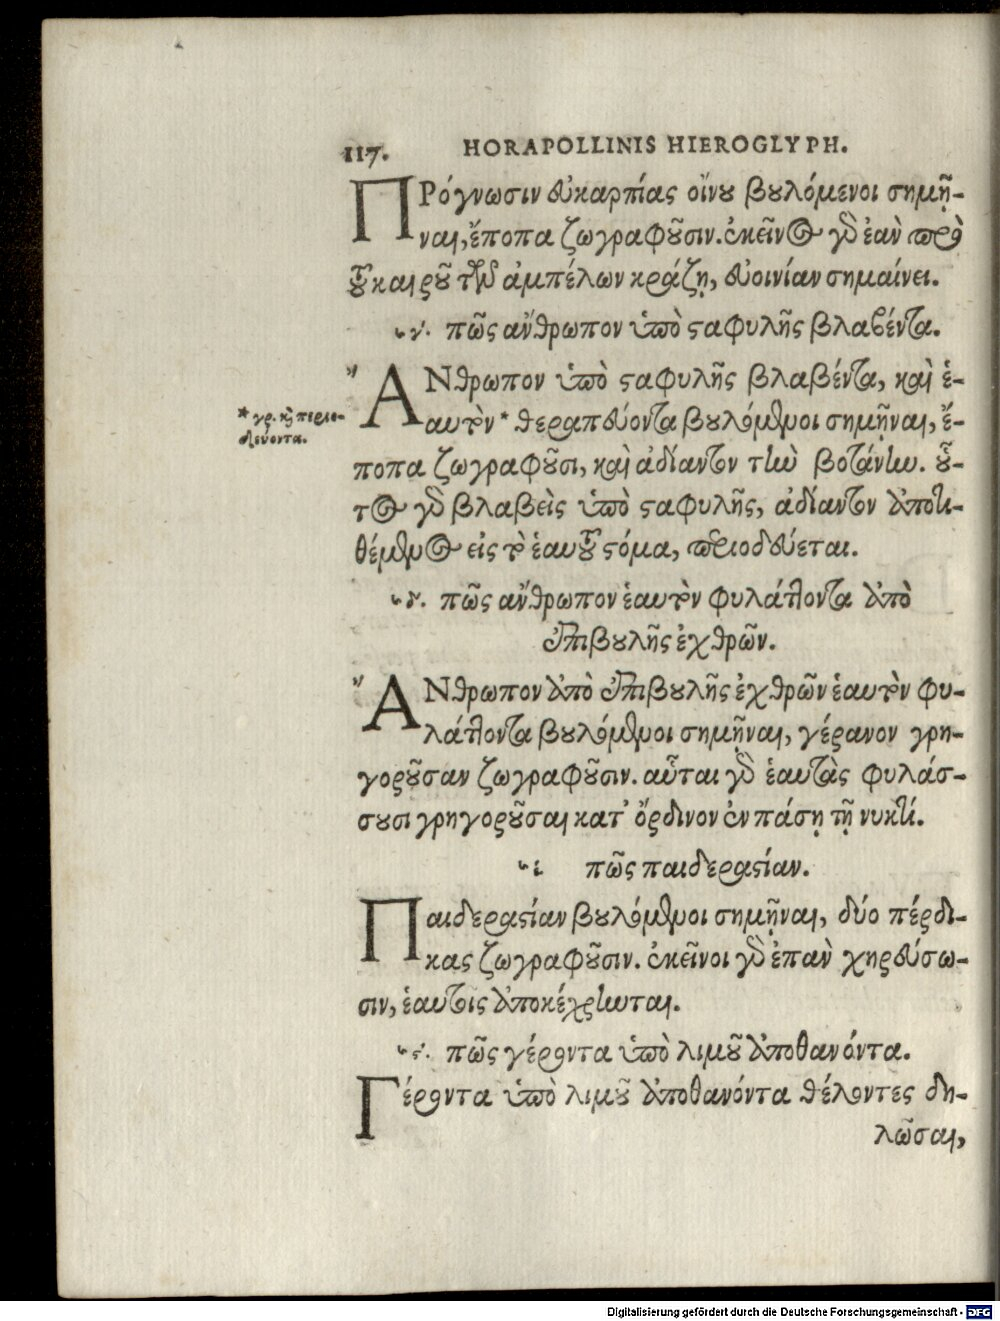 117. HORAPOLLINIS HIEROGLYPH.
ΠΡόγνωσιν εὐκαρπίας οἴνου βουλόμενοι σημῆ-
ναι, ἔποπα ζωγραφοῦσιν. ἐκεῖνος γδ ἐὰν πρὸ
τοῦ καιροῦ τῶν ἀμπέλων κράζῃ, εὐοινίαν σημαίνει.
ϟγ. πῶς ἄνθρωπον ὑπὸ σταφυλῆς βλαβέντα.
ἌΝθρωπον ὑπὸ σταφυλῆς βλαβέντα, καὶ ἑ-
αυτὸν * θεραπεύοντα βουλόμενοι σημῆναι, ἔ-
* γρ. καὶ περιο-
δεύοντα.
ποπα ζωγραφοῦσι, καὶ ἀδίαντον τὴν βοτάνην. οὗ-
τος γδ βλαβεὶς ὑπὸ σταφυλῆς, ἀδίαντον ἀποτι-
θέμενος εἰς τὸ ἑαυτοῦ στόμα, περιοδεύεται.
ϟδ. πῶς ἄνθρωπον ἑαυτὸν φυλάττοντα ἀπὸ
ἐπιβουλῆς ἐχθρῶν.
ἌΝθρωπον ἀπὸ ἐπιβουλῆς ἐχθρῶν ἑαυτὸν φυ-
λάττοντα βουλόμενοι σημῆναι, γέρανον γρη-
γοροῦσαν ζωγραφοῦσιν. αὗται γδ ἑαυτὰς φυλάσ-
σουσι γρηγοροῦσαι κατ' ὄρδινον ἐν πάσῃ τῇ νυκτί.
ϟε πῶς παιδεραστίαν.
Παιδεραστίαν βουλόμενοι σημῆναι, δύο πέρδι-
κας ζωγραφοῦσιν. ἐκεῖνοι γδ ἐπὰν χηρεύσω-
σιν, ἑαυτοῖς ἀποκέχρηνται.
ϟϛ. πῶς γέροντα ὑπὸ λιμοῦ ἀποθανόντα.
Γέροντα ὑπὸ λιμοῦ ἀποθανόντα θέλοντες δη-
λῶσαι,
Digitalisierung gefördert durch die Deutsche Forschungsgemeinschaft - DFG